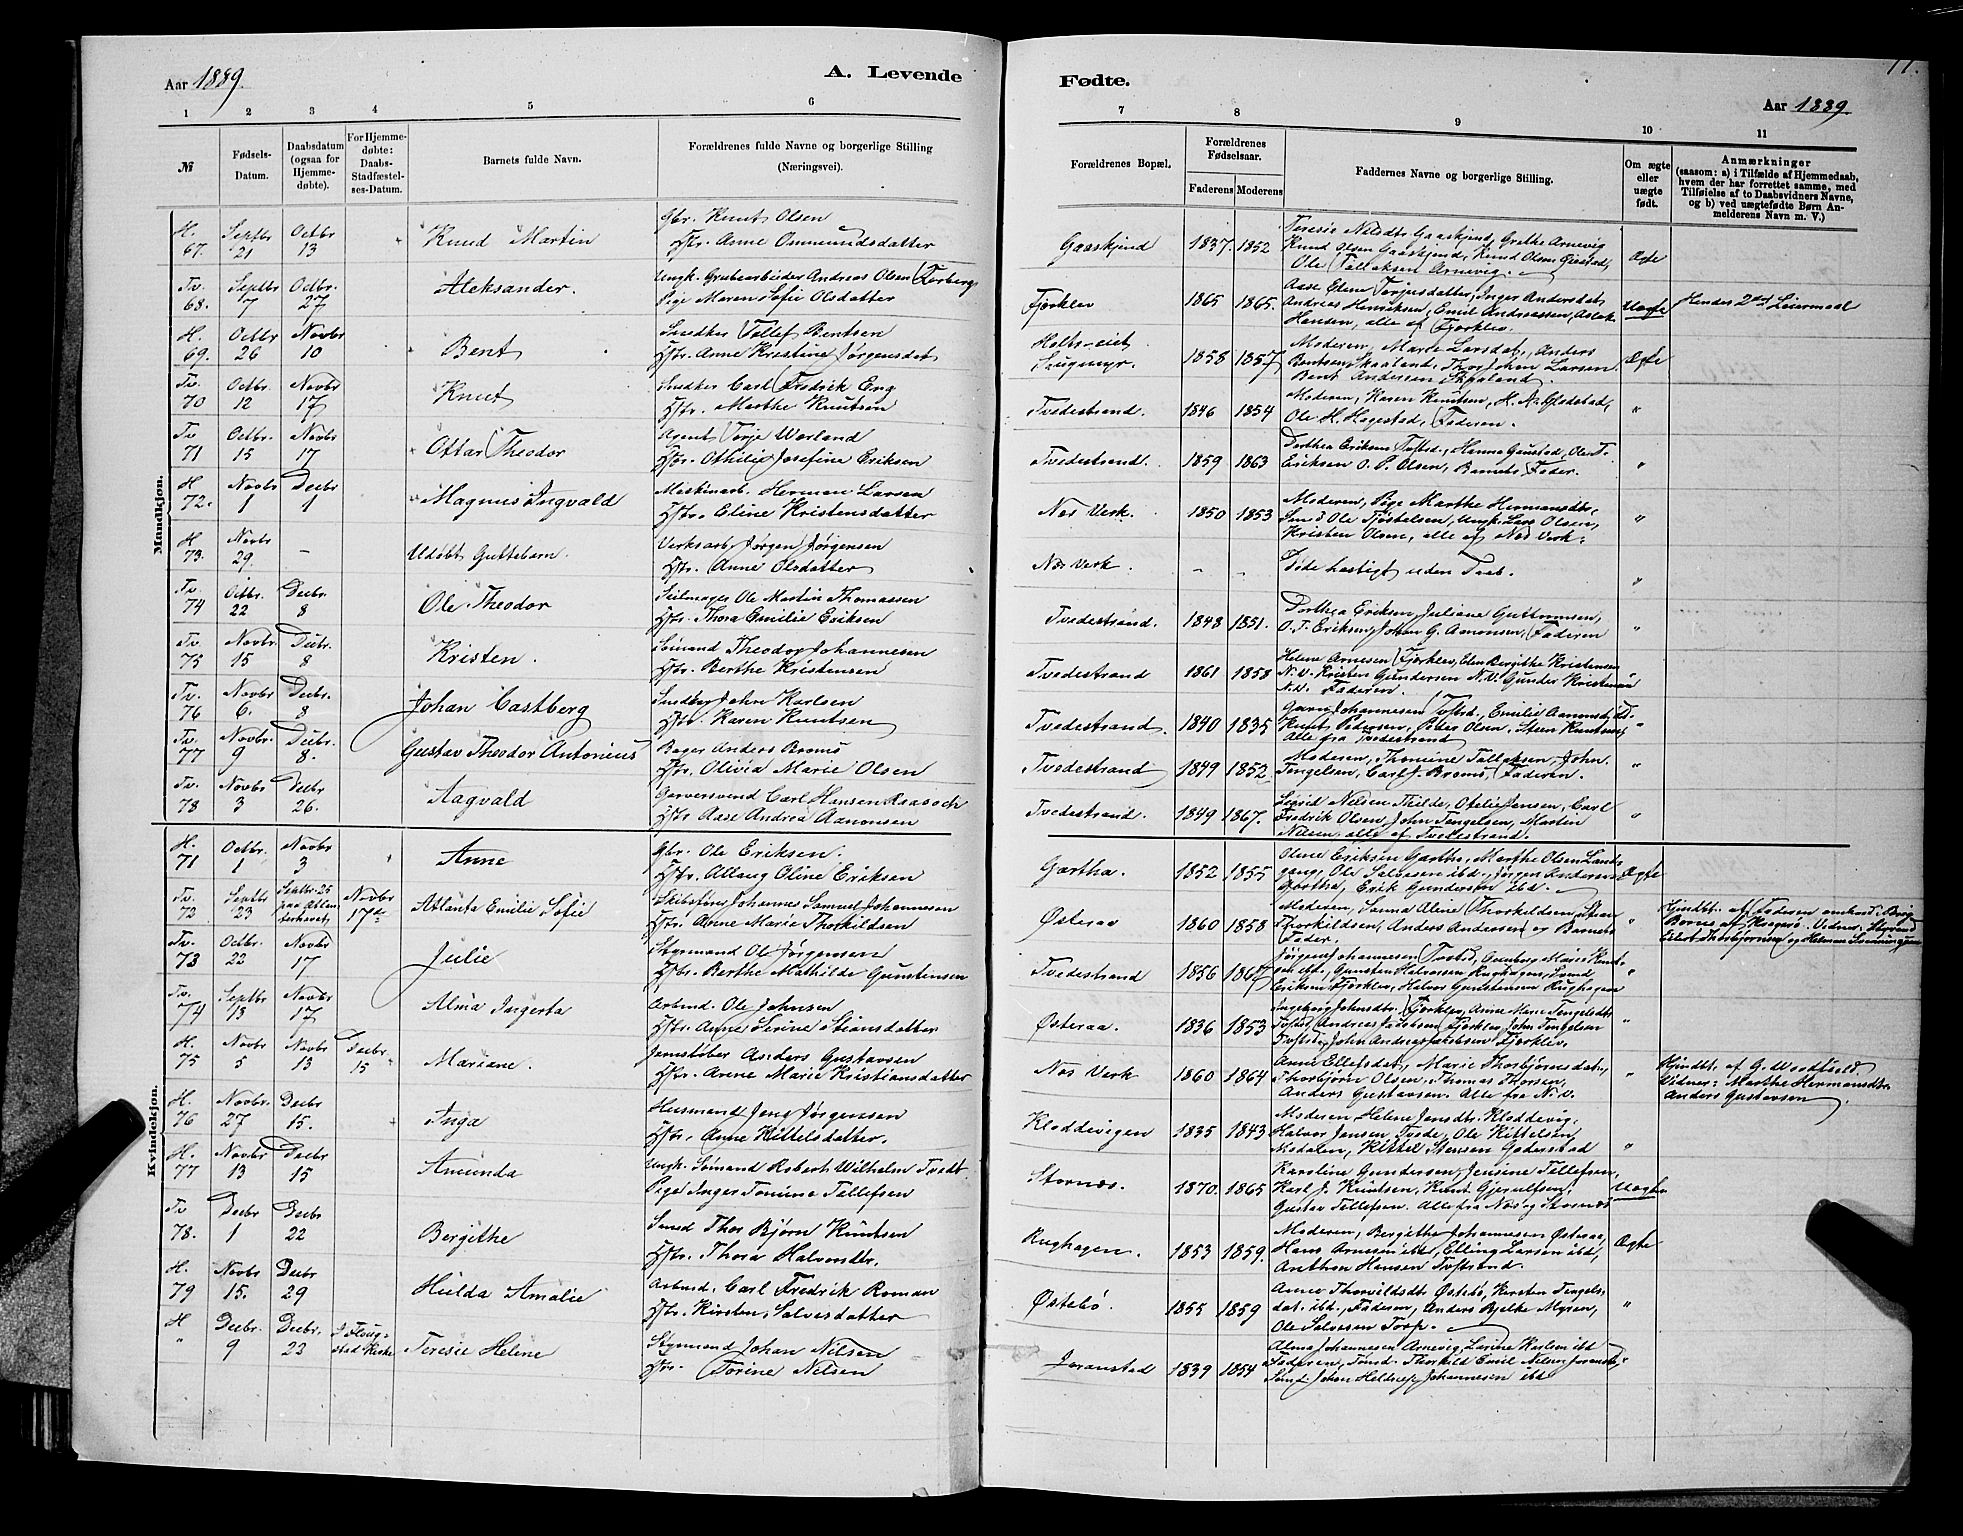 Aar 1889.
A. Levende
Fødte.
Aar 1889.
1 2 3 4 5 6 7 8 9 10 11
№
Fødsels-Datum.
Daabsdatum (ogsaa for Hjemmedøbte).
For Hjemmedøbte: Daabs-Stadfæstelses-Datum.
Barnets fulde Navn.
Forældrenes fulde Navne og borgerlige Stilling (Næringsvei).
Forældrenes Bopæl.
Forældrenes Fødselsaar.
Faderens Moderens
Faddernes Navne og borgerlige Stilling.
Om ægte eller uægte født.
Anmærkninger
(saasom: a) i Tilfælde af Hjemmedaab, hvem der har forrettet samme, med Tilføielse af to Daabsvidners Navne, og b) ved uægtefødte Børn Anmelderens Navn m. V.)
Mandkjøn.
H. 67. Septbr 21 Octbr 13 Knud Martin Gbr. Knut Olsen
Hstr. Anne Osmundsdatter Gaaskjend 1837. 1852 Teresie Nilsdtr. Gaaskjend, Grethe Arnevig
Knud Olsen Gaaskjend, Knud Olsen
Ole Tallaksen Arnevig. Ægte
Tv. 68. Septbr 7 Octbr. 27 Aleksander. Ungk. Grubearbeider Andreas Olsen
Pige Maren Sofie Olsdatter Fjorklev 1865 1865. Aase Olene Torjusdatter, Inger Andersdat,
Andreas Henriksen, Emil Andreassen, Aslak
Hansen, alle af Fjorklev. Uægte Hendes 2det Leiermaal
H. 69. Octbr 26 Novbr 10 Bent Snedker Tellef Bentsen
Hstr. Anne Kristine Jørgensdat Holts-eiet 1858 1857 Moderen, Marie Larsdat, Anders
Bentsen Skaaland, Thor John Larsen
Bent Andersen Skaaland. Ægte
Tv. 70 Octbr 12 Novbr 17 Knut Snedker Carl Fredrik Eng
Hstr. Marthe Knutsen Tvedestrand. 1846 1854 Moderen, Karen Knutsen, H. N. Gladstad,
Ole H. Hagestad, Faderen. "
Tv. 71 Octbr. 15 Novbr 17 Ottar Theodor Agent Torje Worland
Hstr. Othilie Josefine Eriksen Tvedestrand. 1859 1863 Dorthea Eriksen Tvedestd., Hanna Gaustad, Ole T.
Eriksen O. P. Olsen, Barnets Fader. "
H 72. Novbr 1 Decbr 1 Magnus Ingvald Maskinarb. Herman Larsen
Hstr. Eline Kristensdatter Nes Verk. 1850 1853 Moderen, Pige Marthe Hermansdtr,
Smed Ole Fjøstelsen, Ungk. Lars Olsen,
Kristen Olsen, alle af Nes Verk. "
H 73. Novbr 29. – Udøbt Guttebarn. Verksarb. Jørgen Jørgensen
Hstr. Anne Olsdatter Nes Verk. - - Døde hastigt uden Daab. "
Tv. 74 Octbr. 22 Decbr 8 Ole Theodor Seilmager Ole Martin Thomassen
Hstr. Thora Emilie Eriksen Tvedestrand. 1848 1851. Dorthea Eriksen, Juliane Guttormsen,
O. T. Eriksen, Johan G. Aamonsen, Faderen "
Tv. 75 Novbr. 15 Decbr. 8 Kristen. Sømand Theodor Johannesen
Hstr. Berthe Kristensen Tvedestrand 1861 1858 Helene Arnesen Fjorklev, Elen Bergithe Kristensen
N. V. Kristen Gundersen N. V. Gunder Kristensen
N. V. Faderen. "
Tv. 76 Novbr 6. Decbr. 8 Johan Castberg Snedker John Karlsen
Hstr. Karen Knutsen Tvedestrand. 1840 1835 Johannesen Tvedestd., Emilie
Knut Pedersen, Peder Olsen, Steen Knutsen,
Alle fra Tvedestrand "
Tv. 77 Novbr. 9 Decbr. 8. Gustav Theodor Antonius Bager Anders Broms
Hstr. Olivia Marie Olsen Tvedestrand 1849 1852. Moderen, Thomine Tallaksen, John
Tengelsen, Carl J. Broms, Faderen. "
Tv. 78 Novbr 3 Decbr 26. Aagvald Garversvend Carl Hansen Raasoch
Hstr. Aase Andrea Aanonsen Tvedestrand. 1849 1867. Sigrid Nilsen Thilde, Otelie Jensen, Carl
Fredrik Olsen, John Tengelsen, Martin
Nilsen, alle af Tvedestrand. "
Kvindekjøn.
H. 71 Octbr. 1 Novbr 3 Anne Gbr. Ole Eriksen.
Hstr. Allaug Oline Eriksen Gjærtha. 1852 1855 Oline Eriksen Gjærtha, Marthe Olsen Landgang,
Ole Salvesen ibd., Jørgen Andersen
Gjærtha, Erik Gundersen ibd. Ægte
Tv. 72 Septbr 23 Septbr. 25 paa Atlanterhavet Novbr 17de Atlanta Emilie Sofie Skibsfører Johannes Samuel Johannesen
Hstr. Anne Marie Thorkildsen Østeraa 1860 1858 Moderen, Sanna Aline Thorkildsen,
Thorkildsen, Anders Andersen og Barnets
Fader. " Hjmdbt. af Faderen ombord i Brig
Borne af Risør. Vidner: Styrmd
Eilert Thorbjørnsen og Herman
Tv. 73 Octbr. 22 Novbr. 17 Julie Styrmand Ole Jørgensen
Hstr. Berthe Mathilde Gunstensen Tvedestrand 1856 1867 Jørgine Johannesen Tvedstd, Gunborg Marie
Gunsten Halvorsen Rughagen,
Eriksen Fjorklev, Halvor Gunstensen Rughagen "
Tv. 74 Septbr 13 Novbr. 17 Alma Ingerta Arbmd. Ole Johnsen
Hstr. Anne Serine Steansdatter Østeraa. 1836 1853 Ingeborg Johnsdtr Fjorklev, Anne Marie Tengelsdtr
Tvedstd, Andreas Jakobsen Fjorklev, John Tengelsen
Tvedstd., John Andreas Jakobsen Fjorklev. "
H. 75 Novbr 5 Novbr 13 Decbr 15 Mariane. Jernstøber Anders Gustavsen
Hstr. Anne Marie Kristiansdatter Nes Verk 1860 1864 Anne Ellefsdat, Marie Thorbjørnsdat,
Thorbjørn Olsen, Thomas Thorsen,
Anders Gustavsen. Alle fra N. V. " Hjmdbt. af G. Woodfield.
Vidner: Marthe Hermansdtr.
Anders Gustavsen
H. 76 Novbr. 27 Decbr 15. Inga Husmand Jens Jørgensen
Hstr. Anne Kittelsdatter. Kloddevigen 1835 1843 Moderen Helene Jensdtr. Kloddevig.
Halvor Jensen Tvede, Ole Kittelsen
Modalen, Kittel Stensen Goderstad "
H. 77 Novbr 13 Decbr 15 Amunda Ungk. Sømand Robert Wilhelm Tvedt
Pige Inger Tomine Tellefsen Stornæs. 1870. 1865 Karoline Gundersen, Jensine Tellefsen,
Karl J. Knutsen, Knut Gjerulfsen,
Gustav Tellefsen. Alle fra Næs og Stornæs Uægte
Tv 78. Decbr 1 Decbr 22 Bergithe Smed Thor Bjørn Knutsen
Hstr. Thora Halvorsdtr. Rughagen. 1853 1859. Moderen, Bergithe Johannesen Østeraa,
Hans Arnesen ibd, Elling Larsen ibd,
Anthon Hansen Tvedstrand. Ægte
H. 79 Novbr 15. Decbr 29 Hulda Amalie Arbmd. Carl Fredrik Roman
Hstr. Kirsten Salvesdatter Østebø. 1855 1859 Anne Thorvildsdt Østebø, Kirsten Tengelsdat.
ibd., Faderen, Anders Bjelke Myren,
Ole Salvesen Torp. "
H " Decbr. 9 Decbr. 22 I Flougstad Kirke Teresie Helene Styrmand Johan Nilsen
Hstr. Torine Nilsen Joranstad 1839 1854 Alma Johannesen Arnevig, Larine Karlsen ibd
Faderen, Tømd. Thorkild Emil Nilsen Joranstad,
Sømd. Johan Heldrup Johannesen ibd "